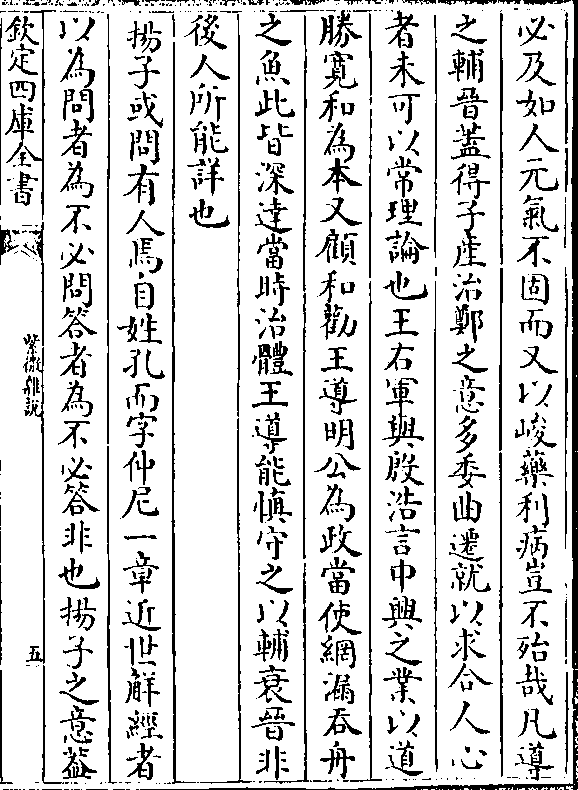 必及如人元氣不固而又以峻藥利病豈不殆哉凡導
之輔晉蓋得子產治鄭之意多委曲遷就以求合人心
者未可以常理論也王右軍與殷浩言中興之業以道
勝寛和為本又顧和勸王導明公為政當使網漏吞舟
之魚此皆深達當時治體王導能慎守之以輔衰晉非
後人所能詳也
揚子或問有人焉自姓孔而字仲尼一章近世解經者
以為問者為不必問答者為不必答非也揚子之意葢
欽定四庫全書
紫微雜説
五